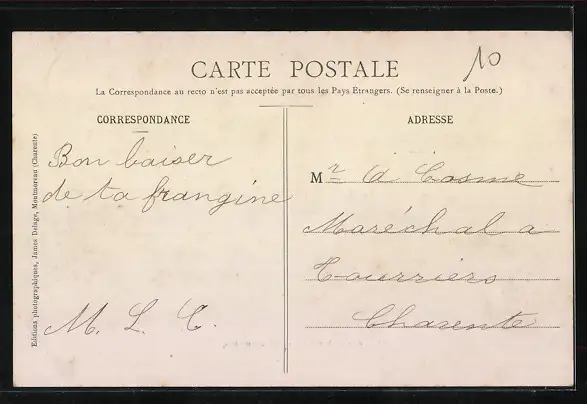 10
CARTE POSTALE
La Correspondance au recto n'est pas acceptée par tous les Pays Etrangers. (Se renseigner à la Poste.)
CORRESPONDANCE
ADRESSE
Bon baiser
de ta frangine
M. L. C.
Mr A Cosme
Maréchal a
Tourriers
Charente
Editions photographiques, James Delage, Montmoreau (Charente)